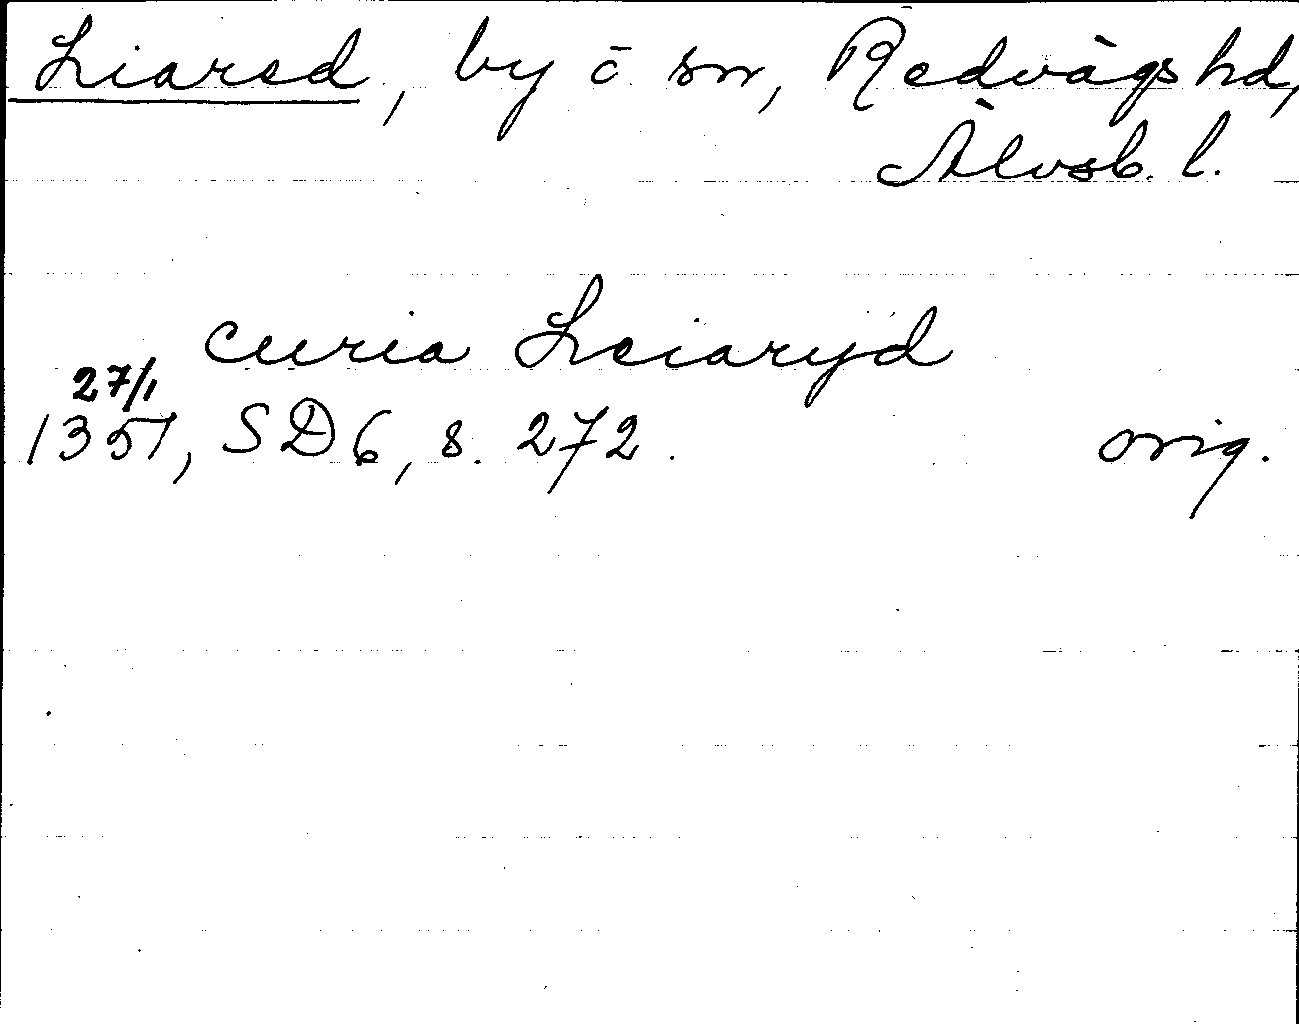 Liared, by o sn, Redvägs hd,
Älvsb. l.
curia Leiaryd
27/1
1351, SD 6, s. 272.
orig.